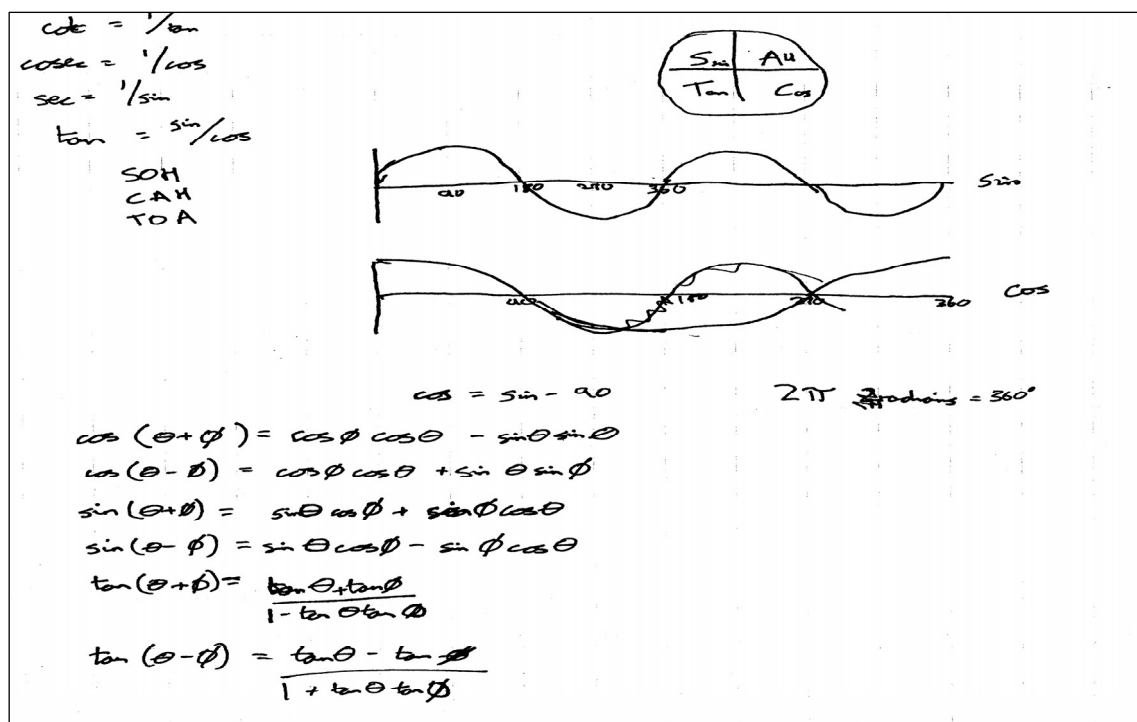 cot = 1/tan
cosec = 1/cos
sec = 1/sin
tan = sin/cos
SOH
CAH
TOA
Sin All
Tan Cos
90 180 270 360 Sin
90 180 270 360 Cos
cos = sin - 90
2π radians = 360°
cos (θ+φ) = cosφ cosθ - sinθ sinθ
cos(θ-φ) = cosφ cosθ + sin θ sinφ
sin(θ+φ) = sinθ cosφ + sinφ cosθ
sin(θ-φ) = sin θ cosφ - sin φ cosθ
tan(θ+φ) = tanθ+tanφ
1 - tan θ tan φ
tan (θ-φ) = tanθ - tan φ
1 + tan θ tan φ